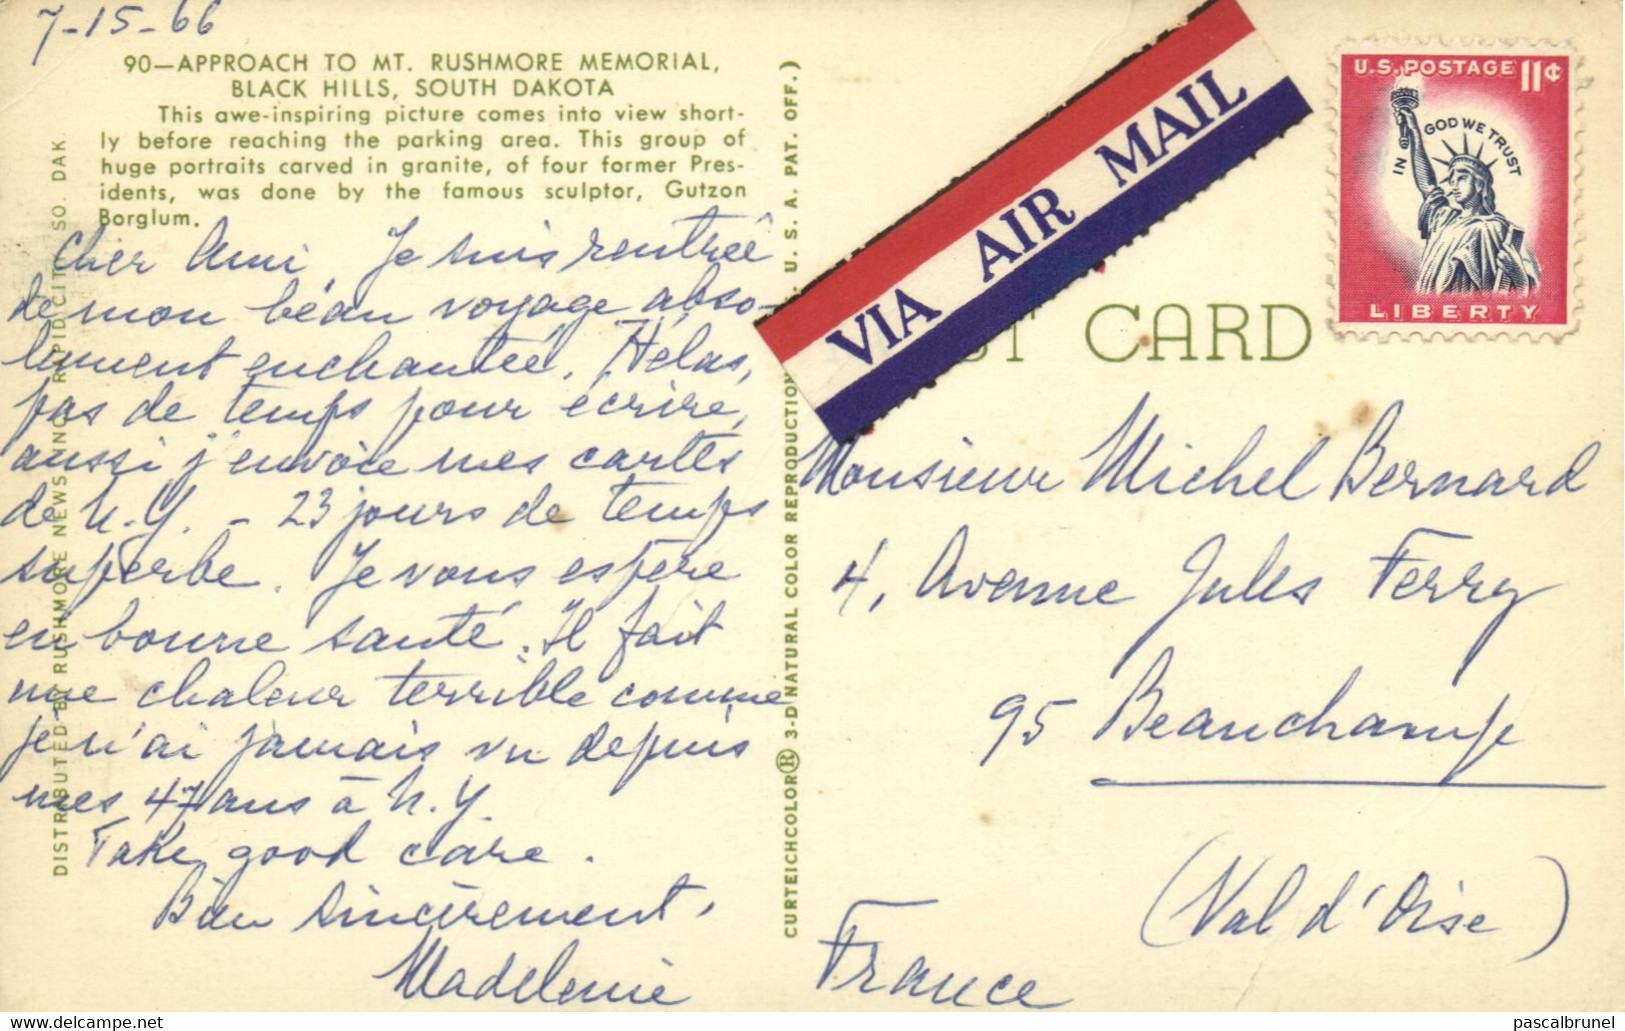 7-15-66
90—APPROACH TO MT. RUSHMORE MEMORIAL,
BLACK HILLS, SOUTH DAKOTA
This awe-inspiring picture comes into view short-
ly before reaching the parking area. This group of
huge portraits carved in granite, of four former Pres-
idents, was done by the famous sculptor, Gutzon
Borglum.
Cher Ami, Je suis rentrée
de mon béau voyage abso-
lument enchantée. Hélas,
pas de temps pour écrire,
aussi j'envoie mes cartes
de N.Y. - 23 jours de temps
superbe. Je vous espère
en bonne santé. Il fait
une chaleur terrible comme
je n'ai jamais vu depuis
mes 47 ans à N.Y.
Take good care.
Bien sincèrement,
Madeleine
DISTRIBUTED BY RUSHMORE NEWS INC. RAPID CITY, SO. DAK.
CURTEICHCOLOR® 3-D NATURAL COLOR REPRODUCTION U. S. A. PAT. OFF.)
VIA AIR MAIL
ST CARD
U.S. POSTAGE 11¢
IN GOD WE TRUST
LIBERTY
Monsieur Michel Bernard
4, Avenue Jules Ferry
95 Beauchamp
(Val d'Oise)
France
www.delcampe.net
pascalbrunel